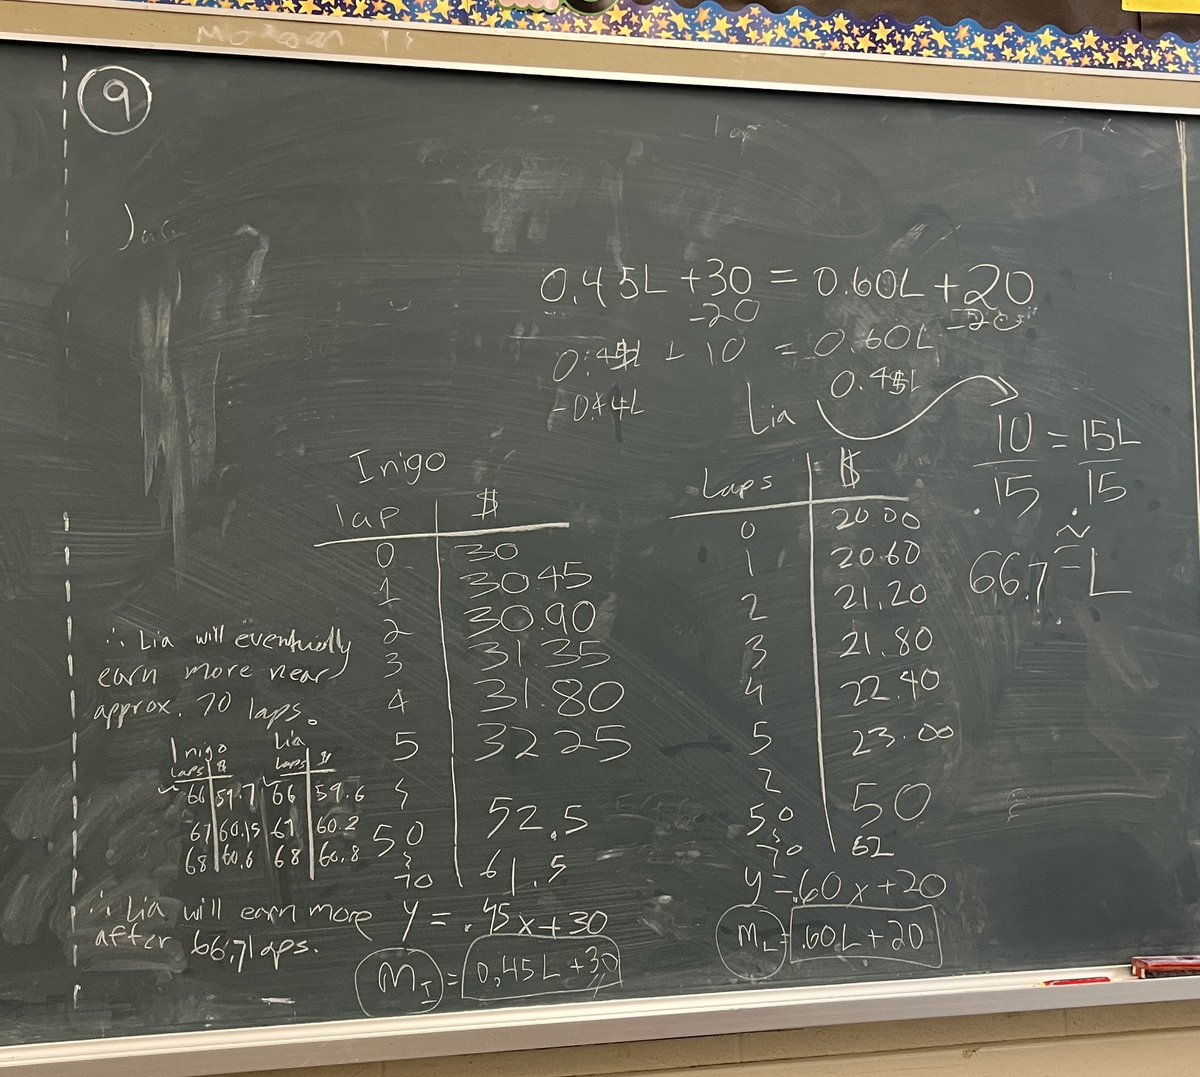 9
0.45L +30 = 0.60L +20
-20 -20
+ 10 = 0.60L
-0.44L
0.45L
Lia
10 = 15L
.15 .15
66.7 ≅ L
Inigo
lap $
0 30
1 30.45
2 30.90
3 31.35
4 31.80
5 32.25
50 52.5
70 61.5
y = .45x+30
M_I = 0.45L +30
Laps $
0 20.00
1 20.60
2 21.20
3 21.80
4 22.40
5 23.00
50 50
70 62
y = .60x+20
M_L = .60L+20
∴ Lia will eventually
earn more near
approx. 70 laps.
Inigo Lia
Laps $ Laps $
66 59.7 66 59.6
67 60.15 67 60.2
68 60.6 68 60.8
∴ Lia will earn more
after 66.7 laps.